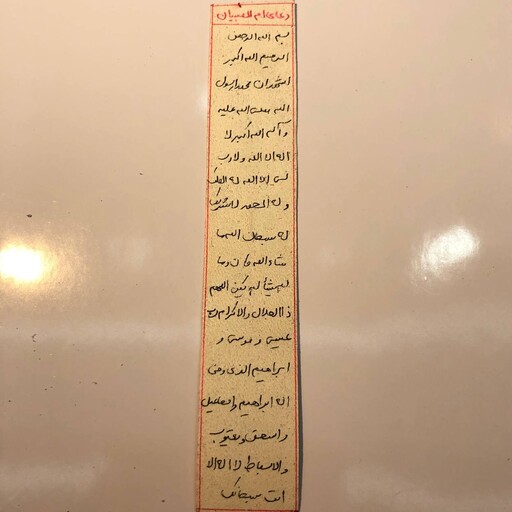 دعای ام الصبیان
بسم الله الرحمن
الرحیم الله اکبر
اشهد ان محمد رسول
الله صلی الله علیه
و آله الله اکبر لا
اله الا الله و لا رب
لی الا الله له الملک
و له الحمد لا شریک
له سبحان الله ما
شاء الله کان و ما
لم یشأ لم یکن اللهم
ذا الجلال والاکرام رب
عیسی و موسی و
ابراهیم الذی وفی
اله ابراهیم و اسمعیل
و اسحق و یعقوب
والاسباط لا اله الا
انت سبحانک